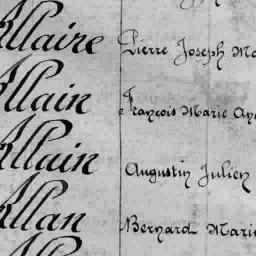 Allaire Pierre Joseph Ma
Allain François Marie Ang
Allain Augustin Julien
Allan Bernard Marie